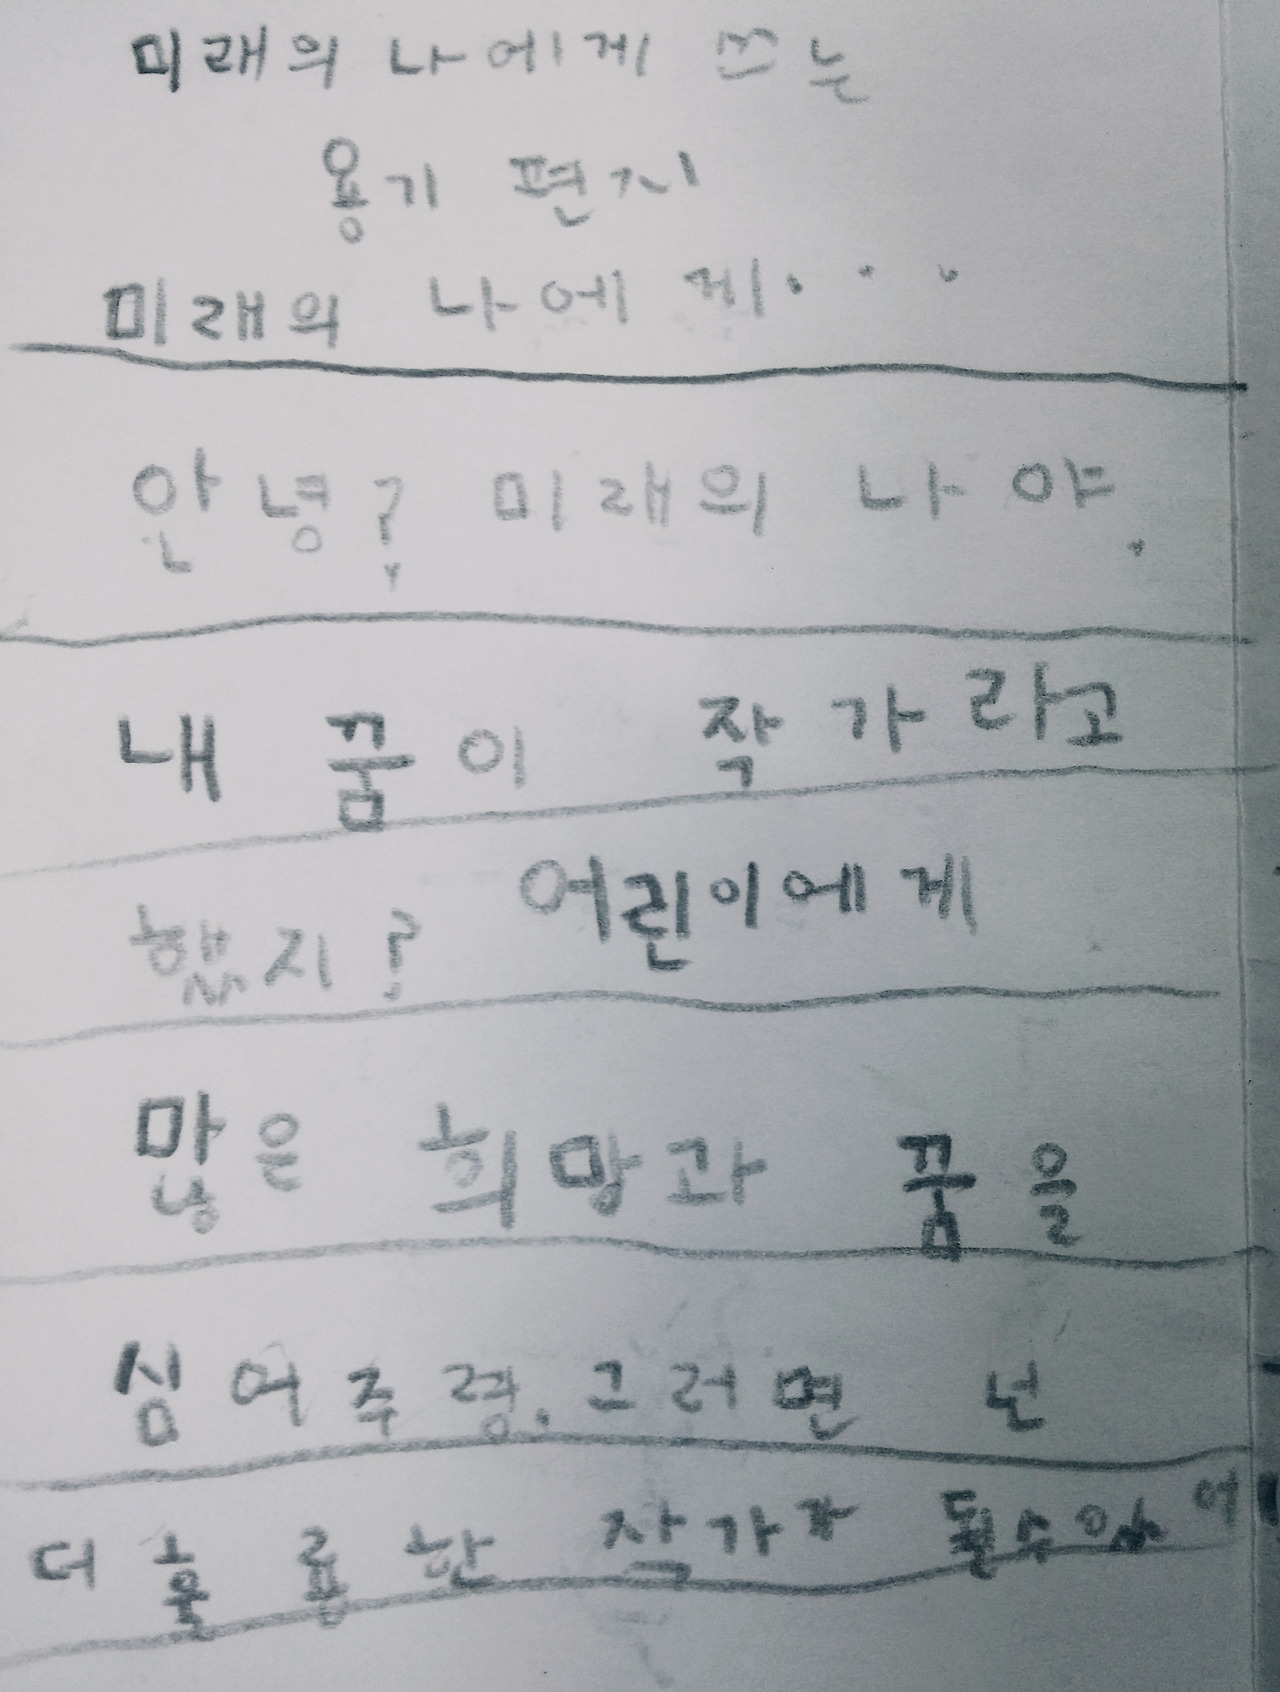 미래의 나에게 쓰는
용기 편지
미래의 나에게...
안녕? 미래의 나야.
내 꿈이 작가라고
했지? 어린이에게
많은 희망과 꿈을
심어주렴. 그러면 넌
더 훌륭한 작가가 될수있어